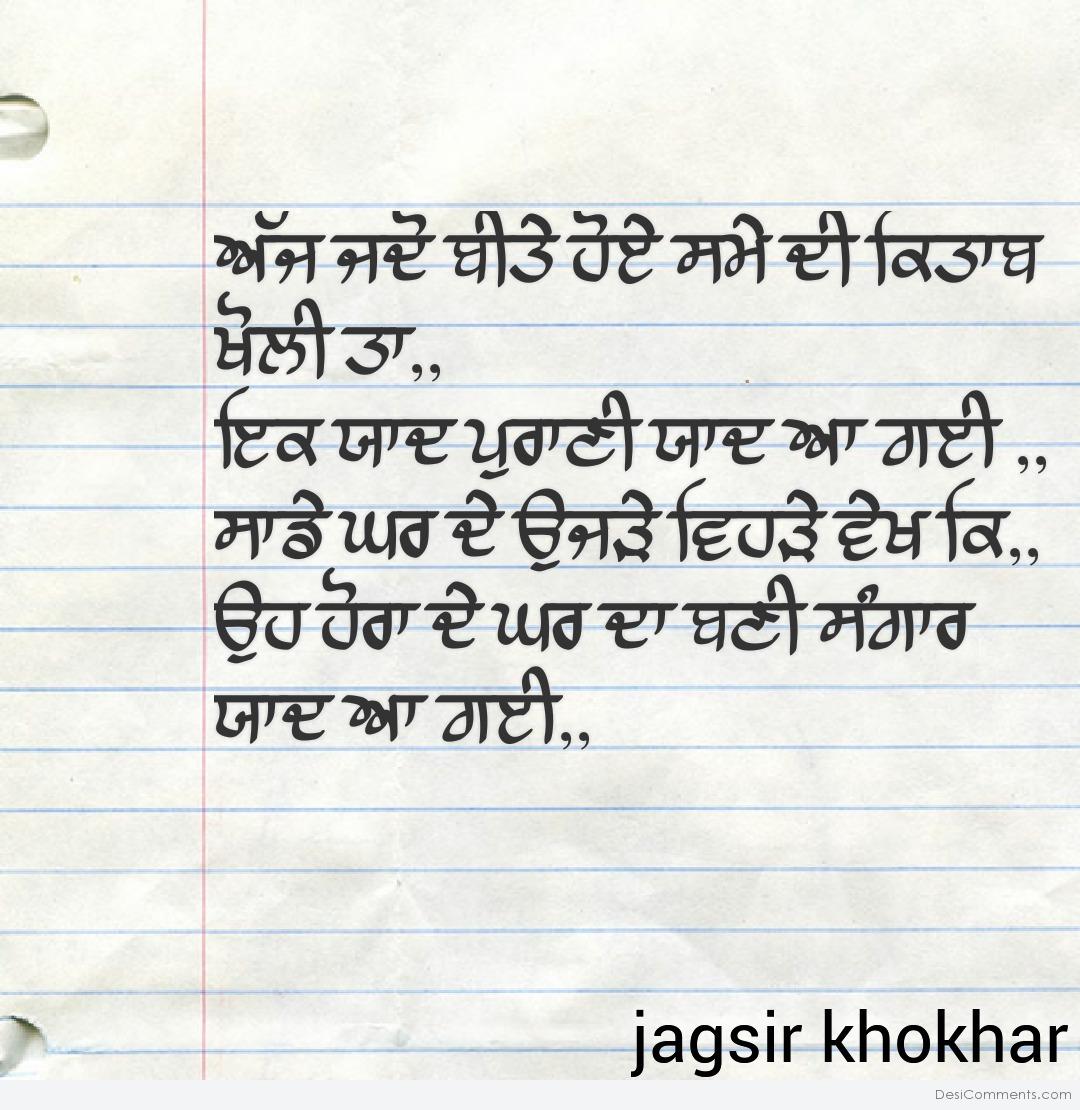 ਅੱਜ ਜਦੋ ਬੀਤੇ ਹੋਏ ਸਮੇ ਦੀ ਕਿਤਾਬ
ਖੋਲੀ ਤਾ,,
ਇਕ ਯਾਦ ਪੁਰਾਣੀ ਯਾਦ ਆ ਗਈ ,,
ਸਾਡੇ ਘਰ ਦੇ ਉਜੜੇ ਵਿਹੜੇ ਵੇਖ ਕਿ,,
ਉਹ ਹੋਰਾ ਦੇ ਘਰ ਦਾ ਬਣੀ ਸੰਗਾਰ
ਯਾਦ ਆ ਗਈ,,
jagsir khokhar
DesiComments.com